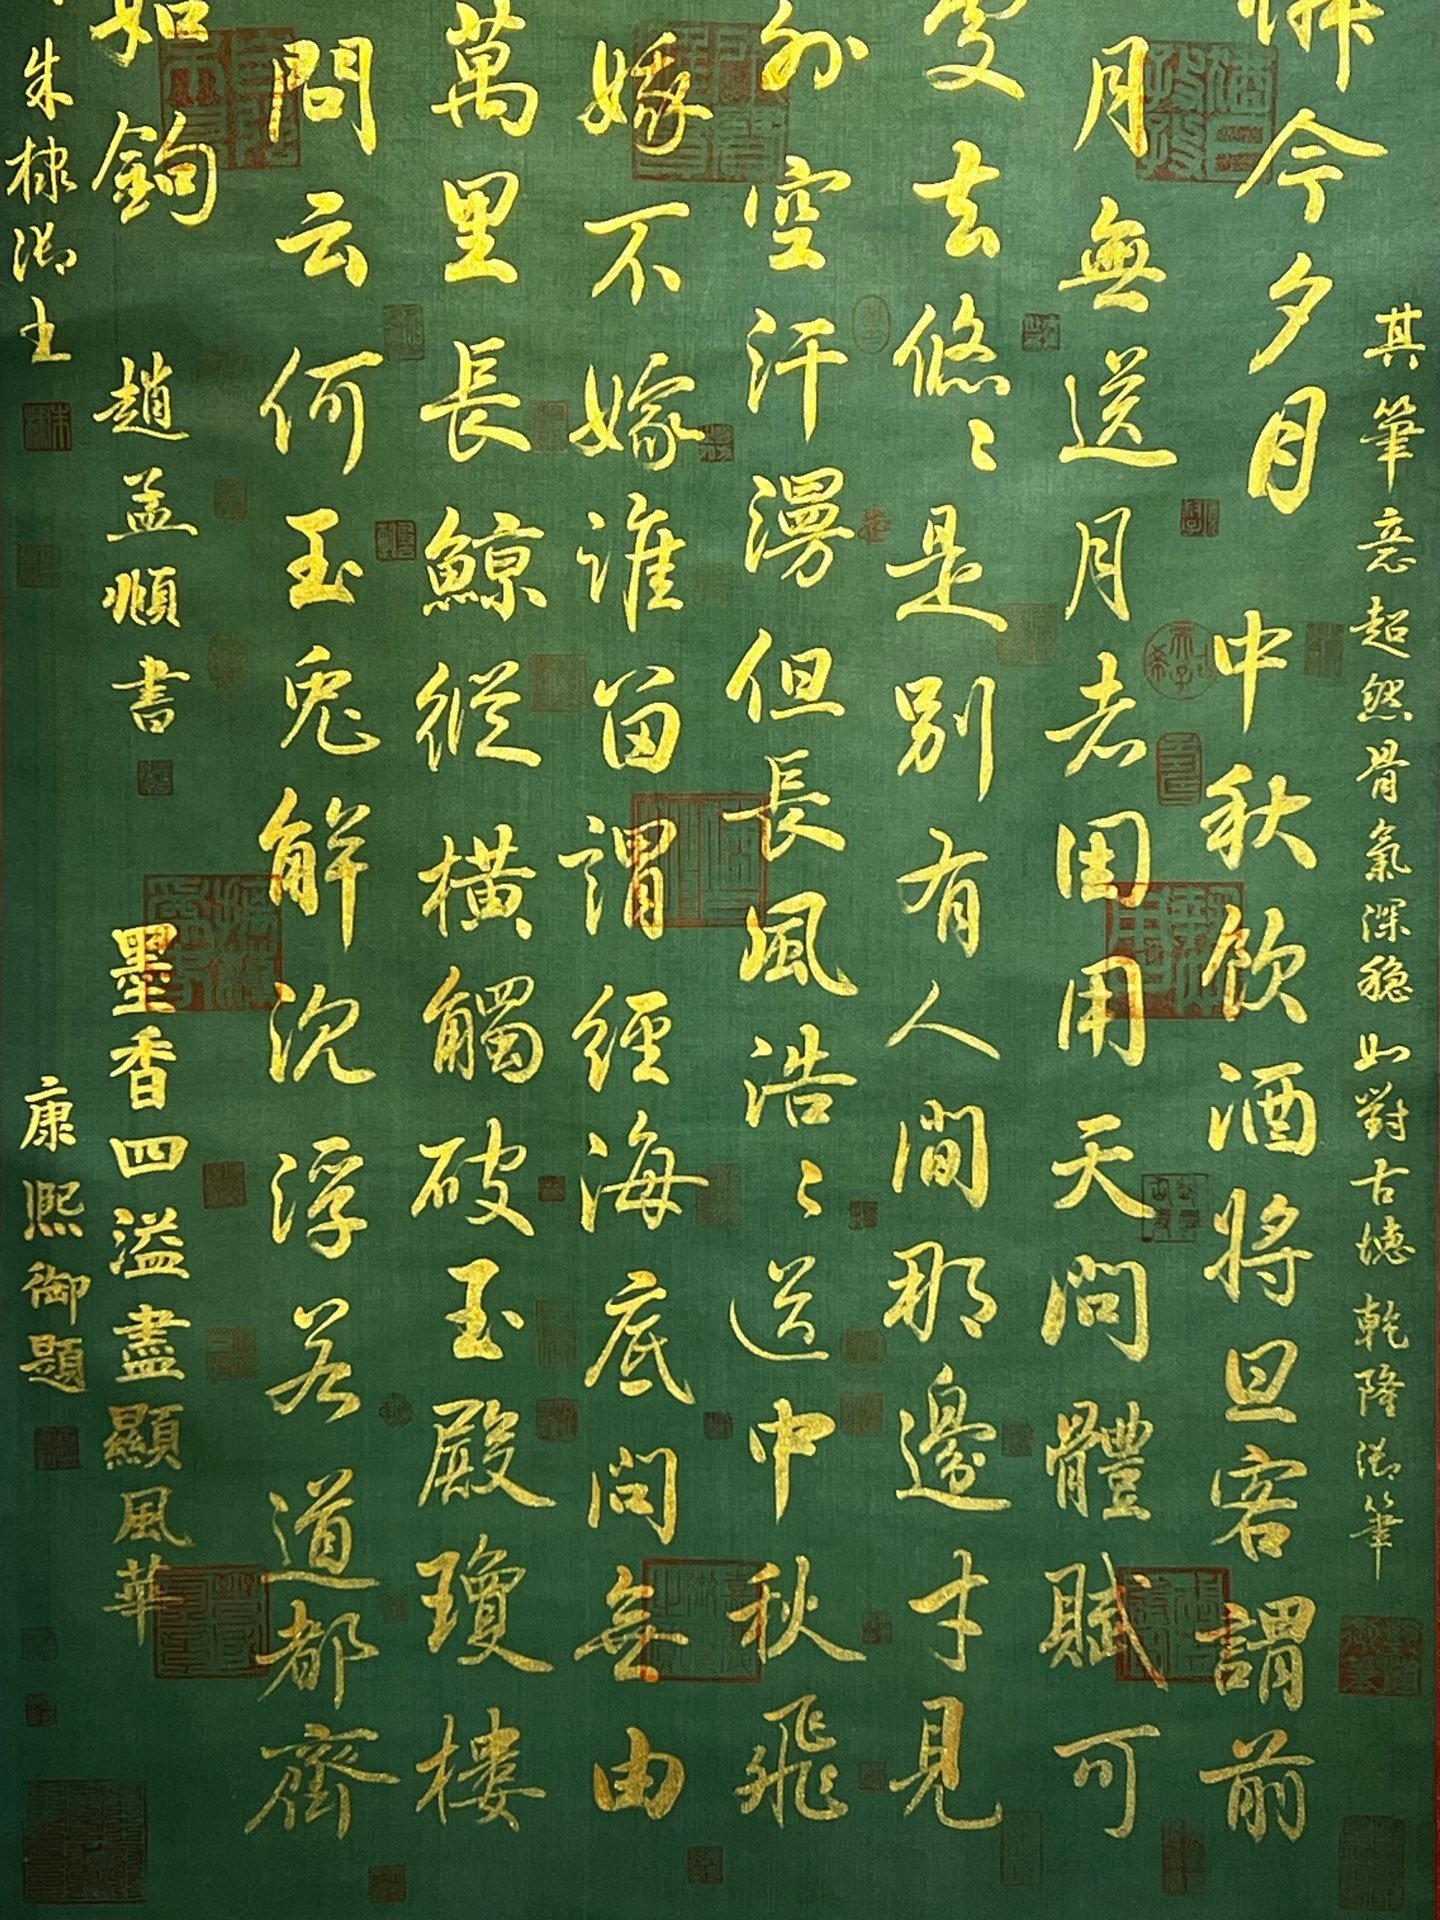 其筆意超然骨氣深穩如對古 乾隆御筆
憐今夕月 中秋飲酒將旦客謂前
月無送月者因用天問體賦可
處去悠〻是別有人間那邊才見
外空汗漫但長風浩〻送中秋飛
娥不嫁誰留謂經海底問無由
萬里長鯨縱橫觸破玉殿瓊樓
問云何玉兔解沉浮若道都齊
如鉤 趙孟頫書 墨香四溢盡顯風華
朱棣御 康熙御題